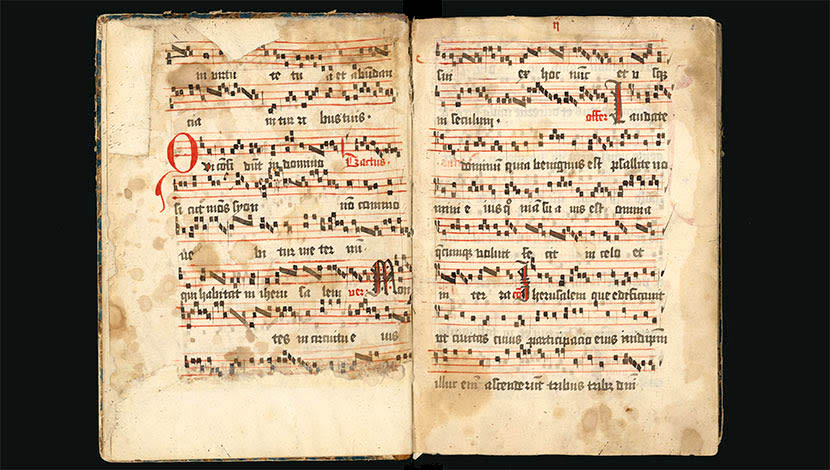 in virtu te tu a et abundan
cia in tur ri bus tuis.
Qui cōfi dūt in domino Tractus.
si cut mōs syon nō cōmmo
ve bi tur in e ter nū.
qui habitat in iheru sa lem ver. Mon
tes in circuitu e ius
ii
sui ex hoc nūc et u sqȝ
in seculum. offer Laudate
dominum quia benignus est psallite no
mini e ius qm̄ su a vis est omnia
q̄cumqȝ voluit fe cit in celo et
in ter ra co Iherusalem que edificatur
ut civitas cuius participacio eius in idipm̄
illuc em̄ ascenderūt tribus tribꝫ dn̄i